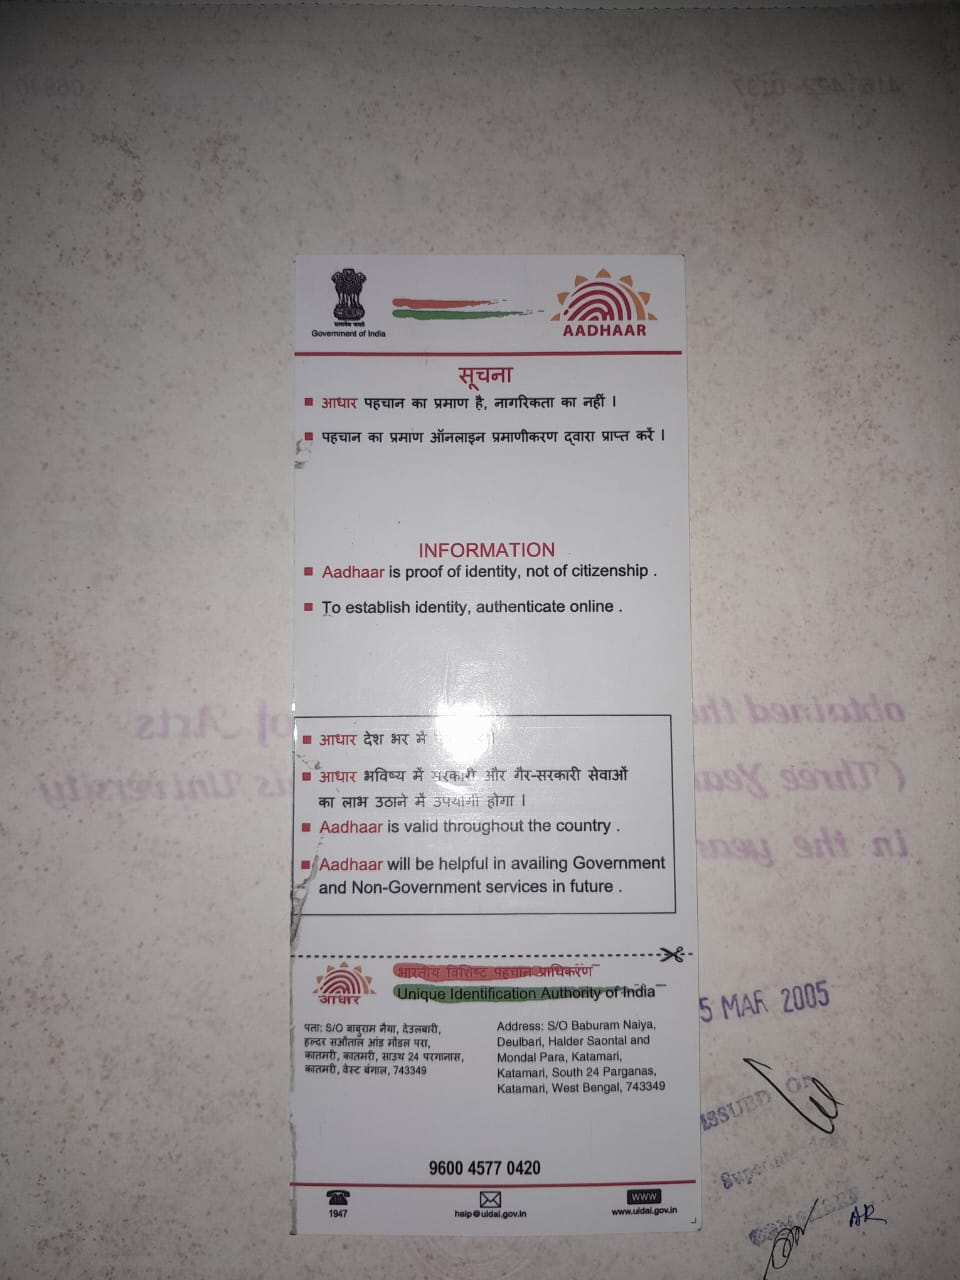 सत्यमेव जयते
Government of India
AADHAAR
सूचना
आधार पहचान का प्रमाण है, नागरिकता का नहीं ।
पहचान का प्रमाण ऑनलाइन प्रमाणीकरण द्वारा प्राप्त करें ।
INFORMATION
Aadhaar is proof of identity, not of citizenship .
To establish identity, authenticate online .
आधार देश भर में
आधार भविष्य में सरकारी और गैर-सरकारी सेवाओं
का लाभ उठाने में उपयोगी होगा ।
Aadhaar is valid throughout the country .
Aadhaar will be helpful in availing Government
and Non-Government services in future .
आधार
भारतीय विशिष्ट पहचान प्राधिकरण
Unique Identification Authority of India
पता: S/O बाबुराम नैया, देउलबारी,
हल्दर सओंताल आंड मोंडल परा,
कातमरी, कातमरी, साउथ 24 परगानास,
कातमरी, वेस्ट बंगाल, 743349
Address: S/O Baburam Naiya,
Deulbari, Halder Saontal and
Mondal Para, Katamari,
Katamari, South 24 Parganas,
Katamari, West Bengal, 743349
9600 4577 0420
1947
help@uidai.gov.in
WWW
www.uidai.gov.in
obtained
of Arts
(Three Year
University
in the year
5 MAR 2005
ISSUED ON
AR